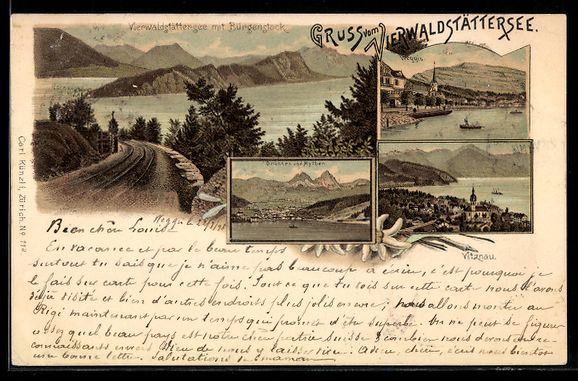 Vierwaldstättersee mit Bürgenstock
GRUSS vom VIERWALDSTÄTTERSEE.
Weggis
Brunnen und Mythen
Vitznau.
Carl Künzli, Zürich. No 112
Weggis le
Bien chère Louise
En vacance et par le beau temps
surtout tu sais que je n'aime pas beaucoup à écrire, c'est pourquoi je
le fais sur carte pour cette fois. Tout ce que tu vois sur cette carte nous l'avons
déjà visité et bien d'autres endroits plus jolis encore; nous allons monter au
Rigi maintenant par un temps qui promet d'être superbe. On ne peut se figurer
assez quel beau pays est notre chère petite Suisse & combien nous devons être
reconnaissants envers Dieu de nous y laisser vivre. Adieu, chère, écris nous bientôt
une bonne lettre. Salutations de maman